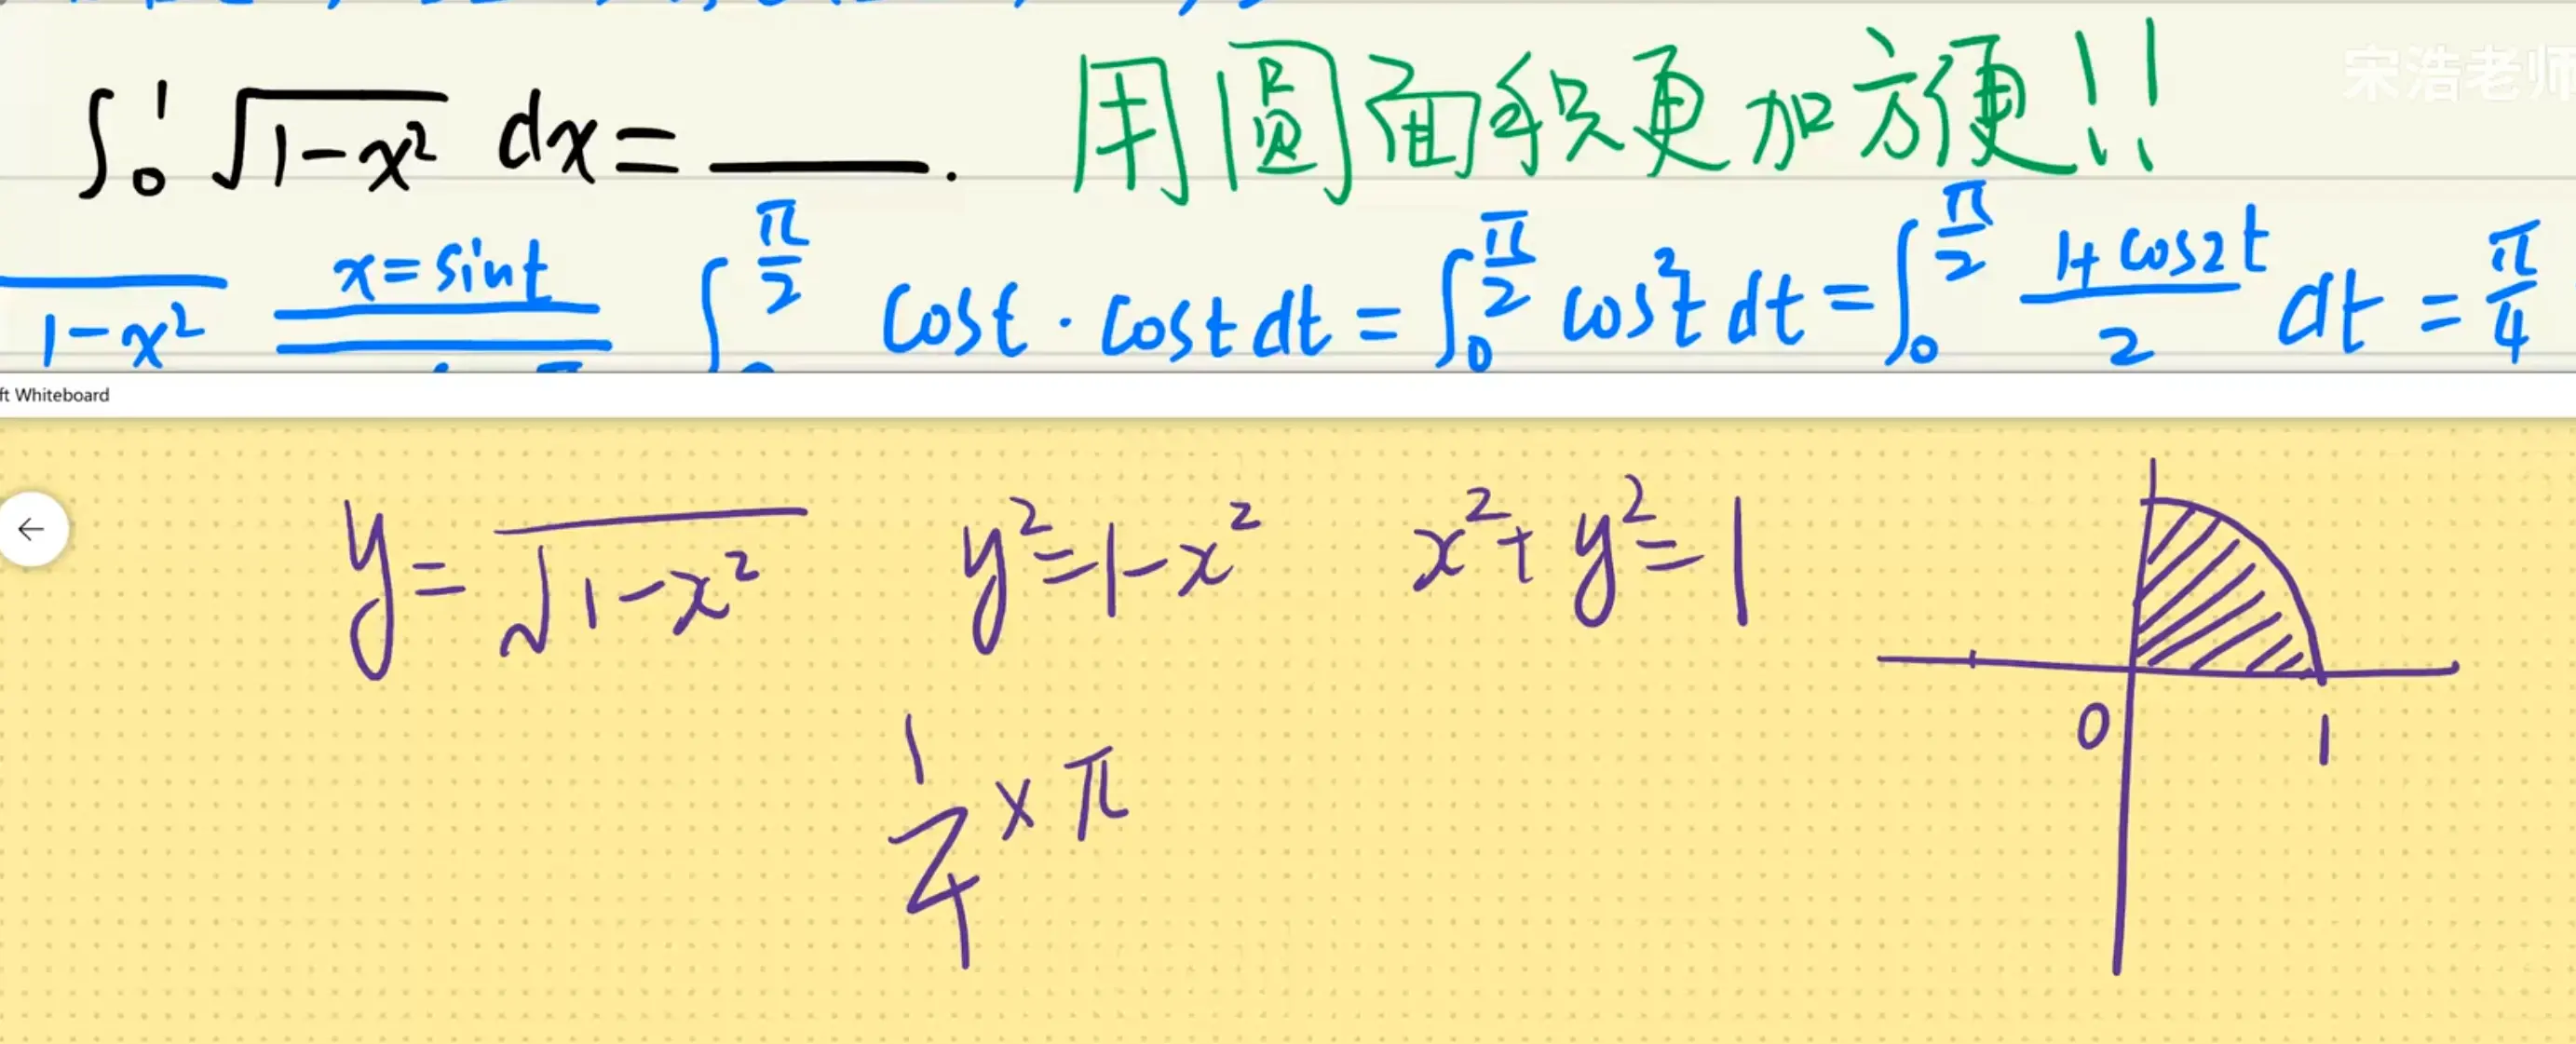 宋浩老师
∫₀¹ √(1-x²) dx = ____. 用圆面积更加方便!!
√(1-x²) x=sint ∫₀^(π/2) cost·cost dt = ∫₀^(π/2) cos²t dt = ∫₀^(π/2) (1+cos2t)/2 dt = π/4
ft Whiteboard
y=√(1-x²) y²=1-x² x²+y²=1
0 1
1/4 × π